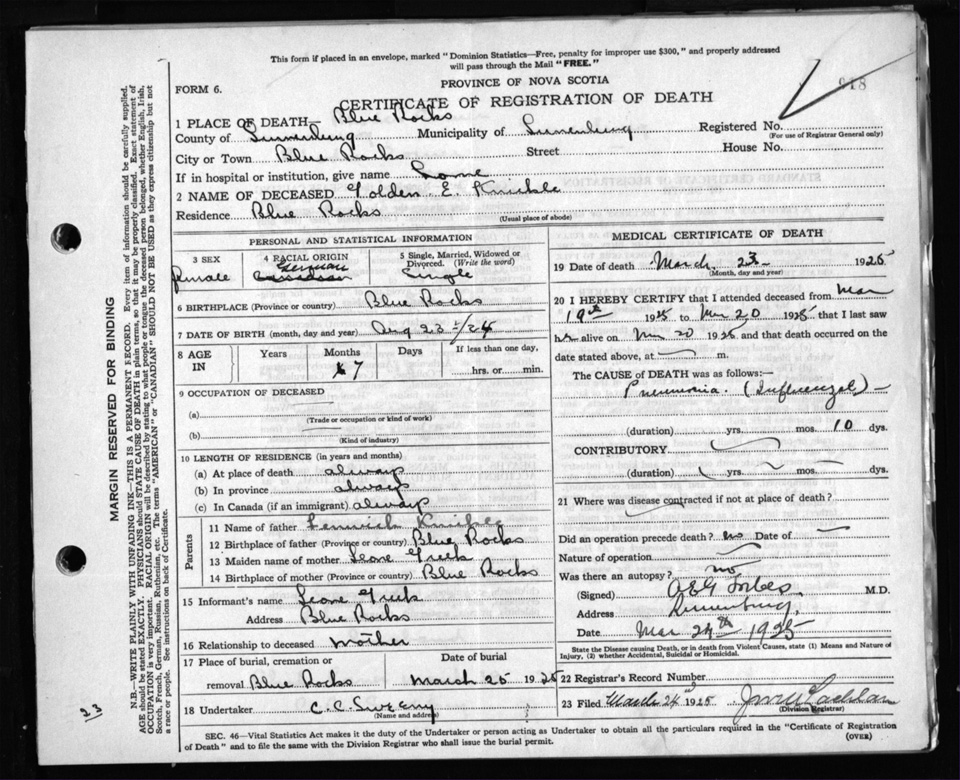 This form if placed in an envelope, marked "Dominion Statistics—Free, penalty for improper use $300," and properly addressed
will pass through the Mail "FREE."
FORM 6.
PROVINCE OF NOVA SCOTIA
918
CERTIFICATE OF REGISTRATION OF DEATH
1 PLACE OF DEATH— Blue Rocks
County of Lunenburg Municipality of Lunenburg Registered No.
(For use of Registrar General only)
City or Town Blue Rocks Street House No.
If in hospital or institution, give name
2 NAME OF DECEASED Golden E. Knickle
Residence Blue Rocks
(Usual place of abode)
PERSONAL AND STATISTICAL INFORMATION
3 SEX 4 RACIAL ORIGIN 5 Single, Married, Widowed or Divorced. (Write the word)
Female German Canadian Single
6 BIRTHPLACE (Province or country) Blue Rocks
7 DATE OF BIRTH (month, day and year) Aug 23 /24
8 AGE IN Years Months Days If less than one day,
7 hrs. or min.
9 OCCUPATION OF DECEASED
(a)
(Trade or occupation or kind of work)
(b)
(Kind of industry)
10 LENGTH OF RESIDENCE (in years and months)
(a) At place of death always
(b) In province always
(c) In Canada (if an immigrant) always
Parents
11 Name of father Knickle
12 Birthplace of father (Province or country) Blue Rocks
13 Maiden name of mother Leone Greek
14 Birthplace of mother (Province or country) Blue Rocks
15 Informant's name Leone Greek
Address Blue Rocks
16 Relationship to deceased Mother
17 Place of burial, cremation or Date of burial
removal Blue Rocks March 25 1925
18 Undertaker C. C. Sweeny
(Name and address)
MEDICAL CERTIFICATE OF DEATH
19 Date of death March 23 1925
(Month, day and year)
20 I HEREBY CERTIFY that I attended deceased from Mar
19th 1925 to Mar 20 1925 that I last saw
her alive on Mar 20 1925 and that death occurred on the
date stated above, at m.
The CAUSE of DEATH was as follows:—
Pneumonia. (Influenzal)
(duration) yrs. mos. 10 dys.
CONTRIBUTORY
(duration) yrs. mos. dys.
21 Where was disease contracted if not at place of death?
Did an operation precede death? no Date of
Nature of operation
Was there an autopsy? no
(Signed) Forbes, M.D.
Address Lunenburg,
Date Mar 24th 1925
State the Disease causing Death, or in death from Violent Causes, state (1) Means and Nature of
Injury, (2) whether Accidental, Suicidal or Homicidal.
22 Registrar's Record Number
23 Filed March 24th 1925
(Division Registrar)
SEC. 46—Vital Statistics Act makes it the duty of the Undertaker or person acting as Undertaker to obtain all the particulars required in the "Certificate of Registration
of Death" and to file the same with the Division Registrar who shall issue the burial permit.
(OVER)
MARGIN RESERVED FOR BINDING
N.B.—WRITE PLAINLY WITH UNFADING INK—THIS IS A PERMANENT RECORD. Every item of information should be carefully supplied.
AGE should be stated EXACTLY. PHYSICIANS should STATE CAUSE OF DEATH in plain terms, so that it may be properly classified. Exact statement of
OCCUPATION is very important. RACIAL ORIGIN will be described by stating to what people or tongue the deceased person belonged, whether English, Irish,
Scotch, French, German, Russian, Ruthenian, etc. The terms "AMERICAN" or "CANADIAN" SHOULD NOT BE USED as they express citizenship but not
a race or people. See instructions on back of Certificate.
23